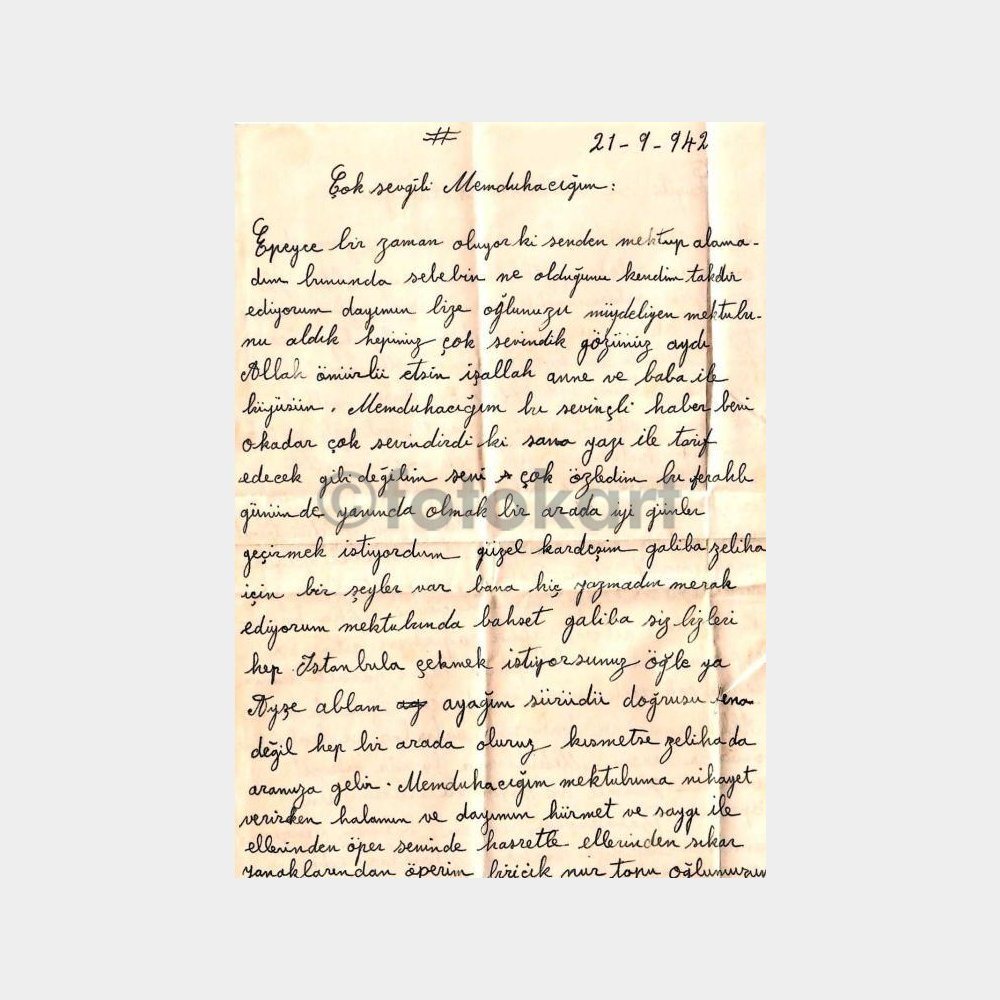 21-9-942
Çok sevgili Memduhacığım:
Epeyce bir zaman oluyorki senden mektup alama-
dım bununda sebebin ne olduğunu kendim takdir
ediyorum dayımın bize oğlunuzu müjdeliyen mektubu-
nu aldık hepimiz çok sevindik gözünüz aydı
Allah ömürlü etsin işallah anne ve baba ile
büyüsün. Memduhacığım bu sevinçli haber beni
okadar çok sevindirdi ki sana yazı ile tarif
edecek gibi değilim seni çok özledim bu ferahlı
gününde yanında olmak bir arada iyi günler
geçirmek istiyordum güzel kardeşim galiba zeliha
için bir şeyler var bana hiç yazmadın merak
ediyorum mektubunda bahset galiba siz bizleri
hep İstanbula çekmek istiyorsunuz öğle ya
Ayşe ablam ayağım sürüdü doğrusu fena
değil hep bir arada oluruz kısmetse zeliha da
aramıza gelir. Memduhacığım mektubuma nihayet
verirken halamın ve dayımın hürmet ve saygı ile
ellerinden öper seninde hasretle ellerinden sıkar
yanaklarından öperim biricik nur topu oğlumuzun
©fotokart